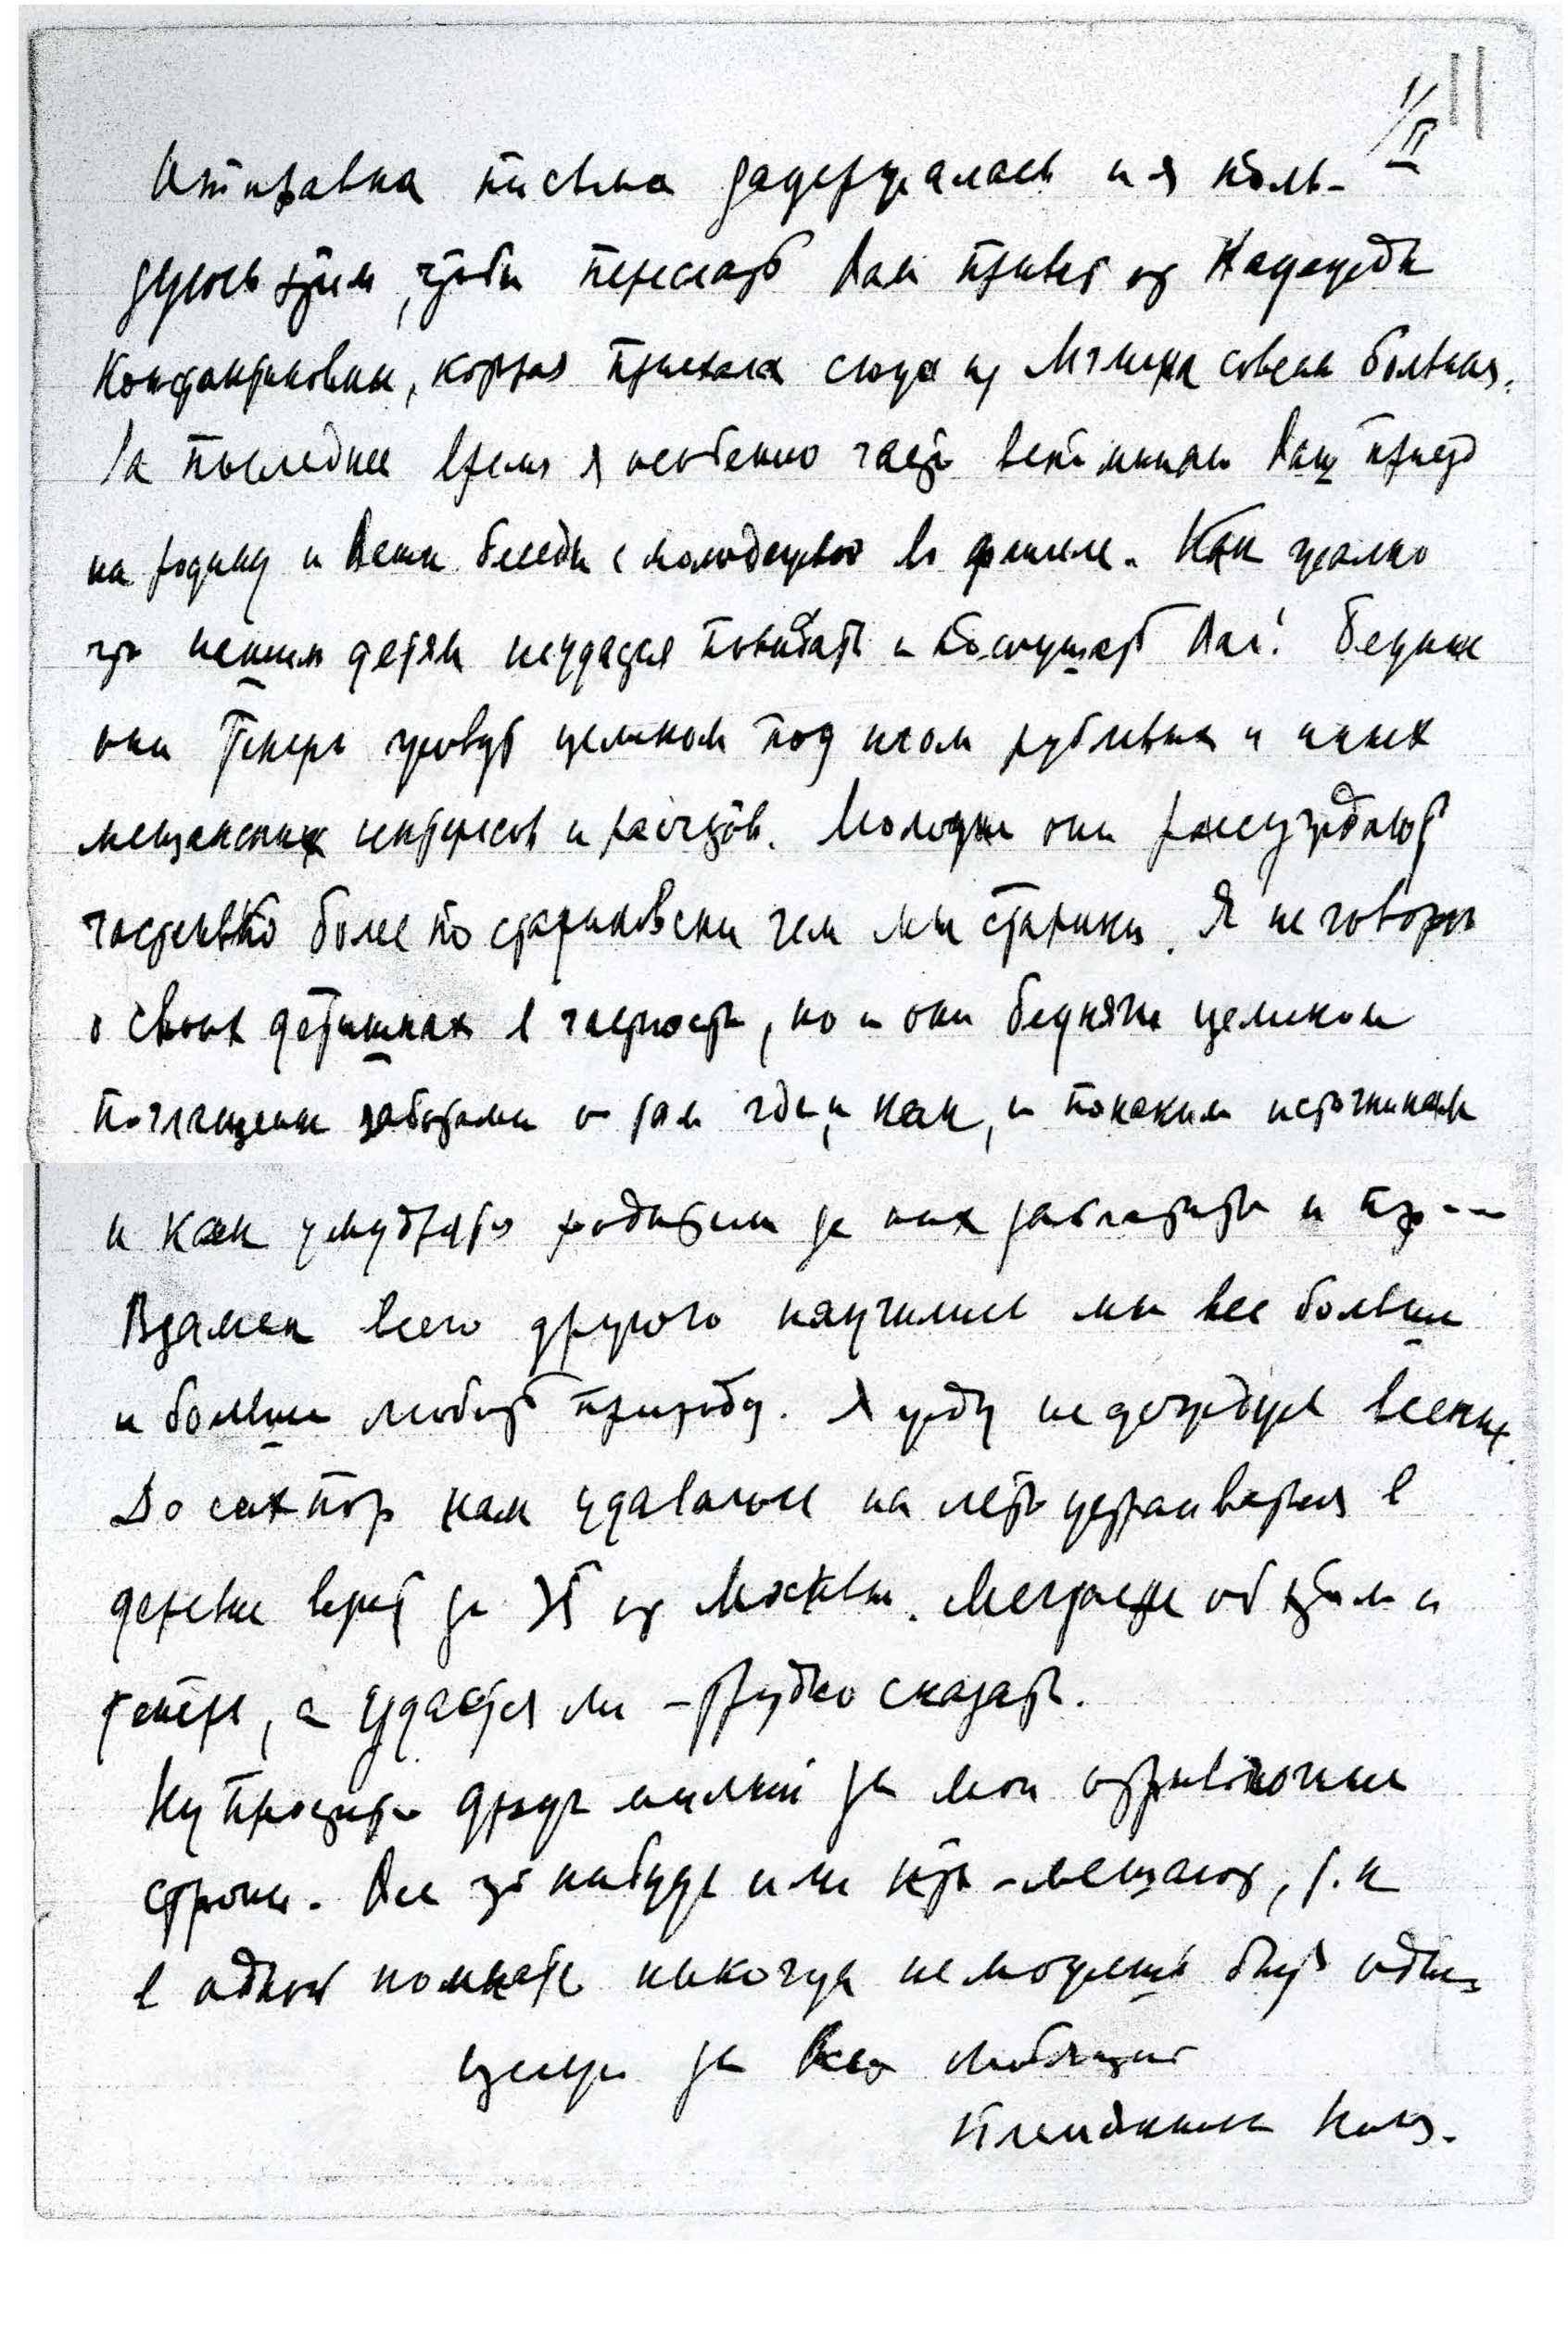 1/II
Отправка письма задержалась и я поль-
зуюсь этим, чтобы переслать Вам привет от Надежды
Константиновны, которая приехала сюда из Мглина совсем больная.
За последнее время я особенно часто вспоминаю Ваш приезд
на родину и Ваши беседы с молодежью во флигеле. Как жалко
что нашим детям не удастся повидать и послушать Вас! Бедные
они теперь живут целиком под игом рублевых и иных
мещанских интересов и расчетов. Молодые они рассуждают
часто более по стариковски чем мы старики. Я не говорю
о своих детишках в частности, но и они бедняги целиком
поглащены заботами о том где, и как, и по каким источникам
и как умудрятся родители за них заплатить и пр --
Взамен всего другого научились мы все больше
и больше любить природу. Я жду не дождусь весны.
До сих пор нам удавалось на лето устраиваться в
деревне верст за от Москвы. Мечтаем об этом и
теперь, а удастся ли – трудно сказать.
Ну простите друг милый за мои отрывочные
строки. Все что нибудь или кто – мешают, т.к
в одной комнате никогда не можешь быть один
Ваш любящий